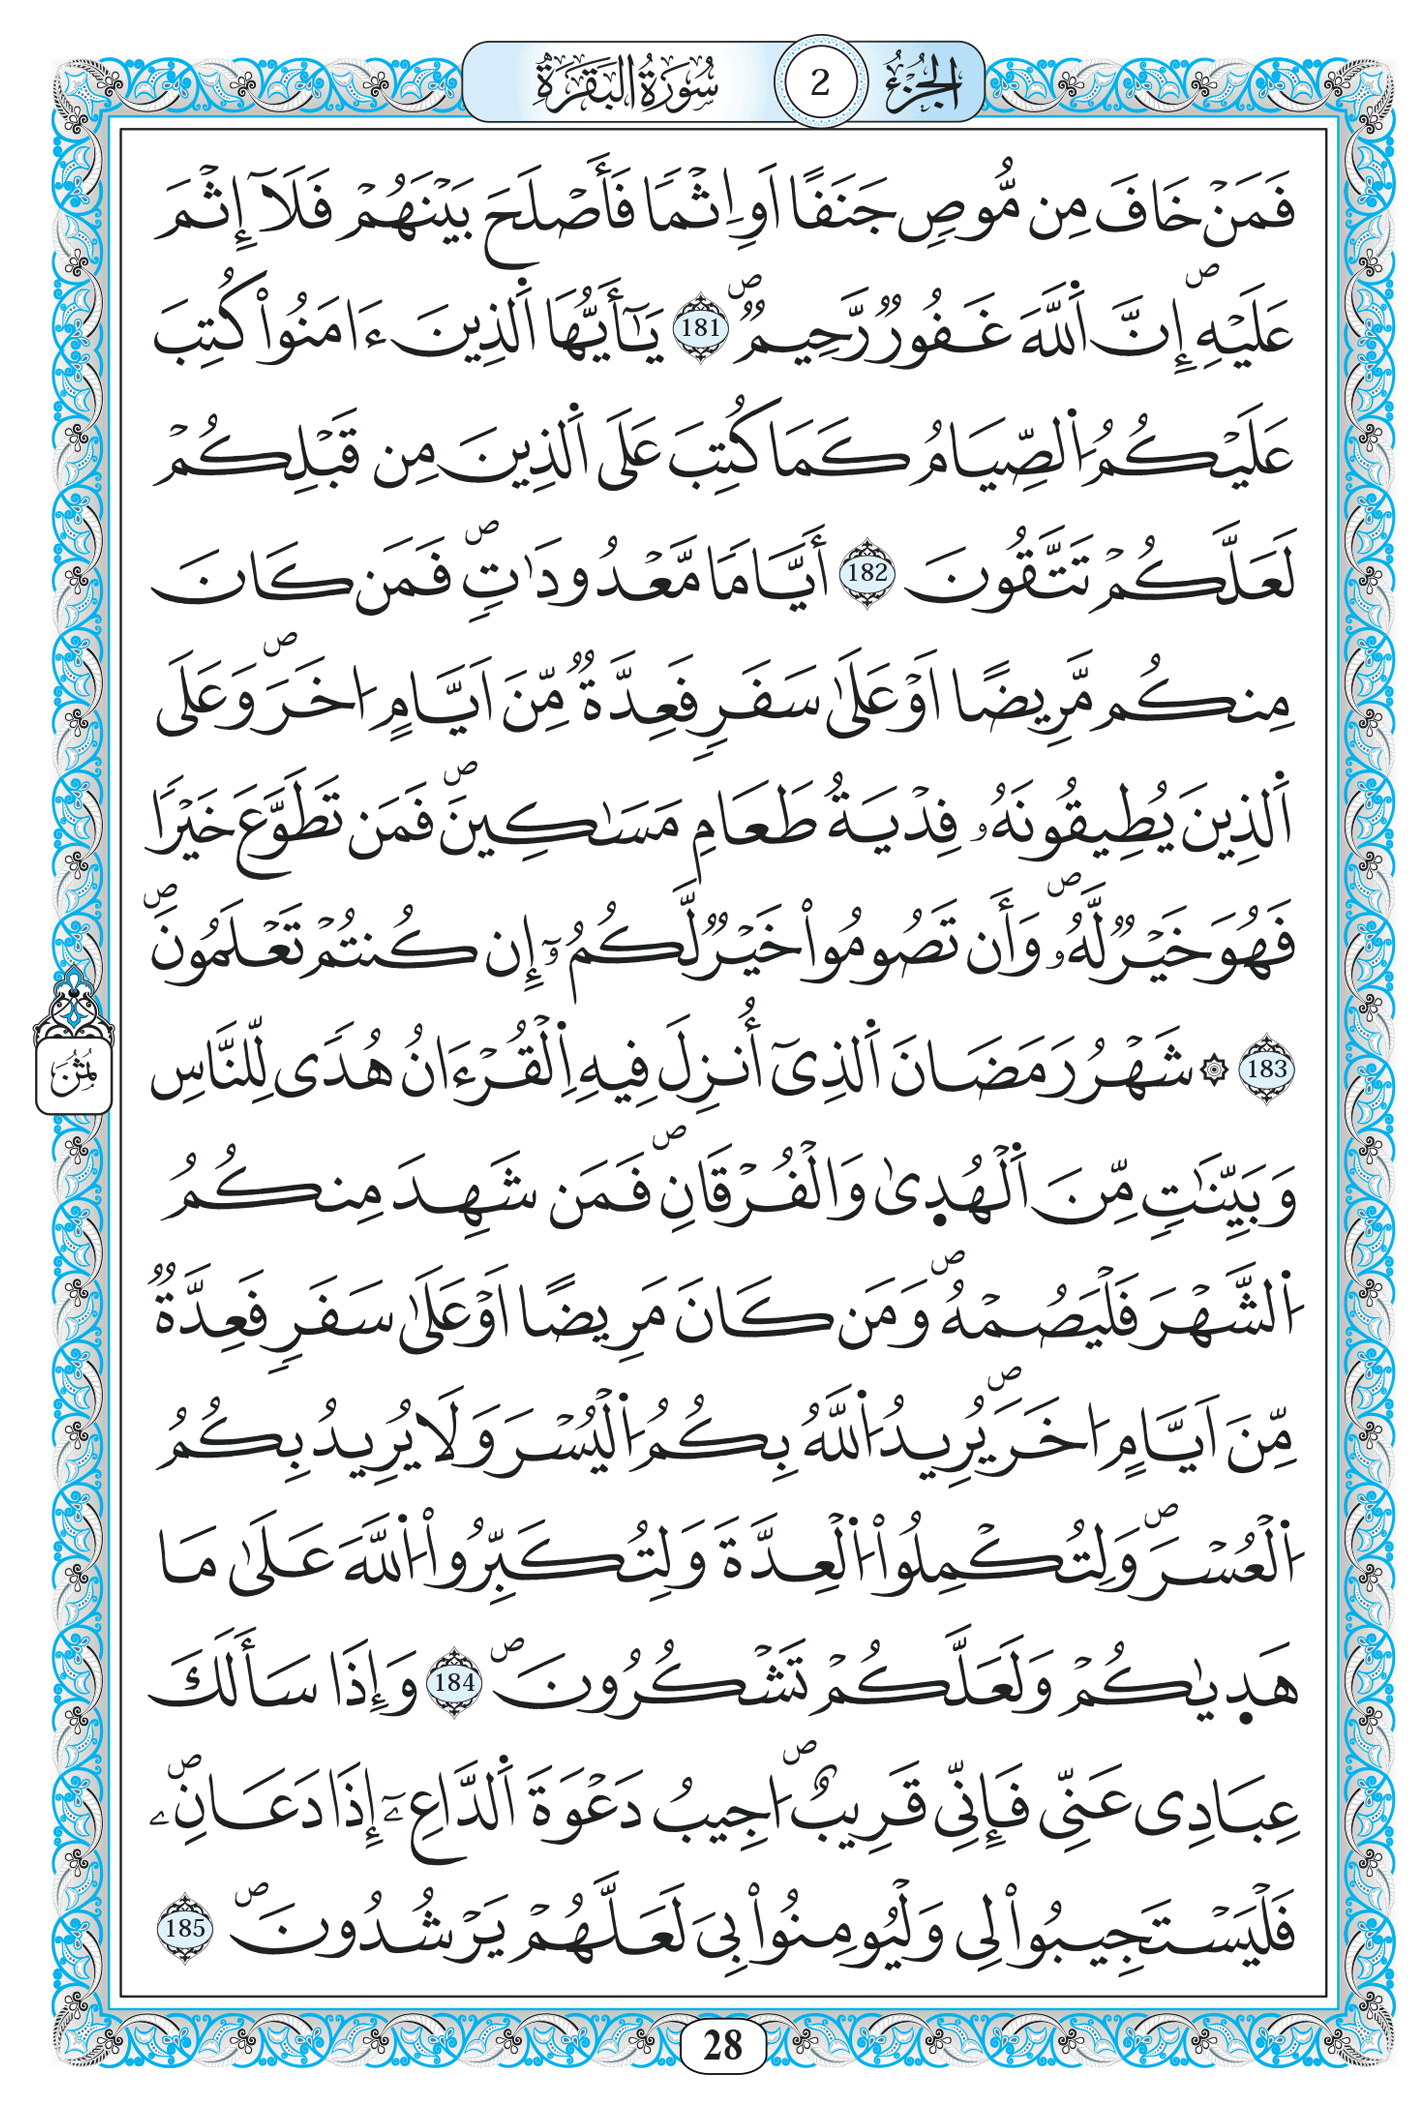 الجُزْءُ 2 سُورَةُ البَقَرَةِ
فَمَنْ خَافَ مِن مُّوصٍ جَنَفًا اَوِ اِثْمًا فَأَصْلَحَ بَيْنَهُمْ فَلَآ إِثْمَ
عَلَيْهِۖ إِنَّ اَ۬للَّهَ غَفُورٞ رَّحِيمٞۖ 181 يَٰٓأَيُّهَا اَ۬لذِينَ ءَامَنُواْ كُتِبَ
عَلَيْكُمُ اُ۬لصِّيَامُ كَمَا كُتِبَ عَلَى اَ۬لذِينَ مِن قَبْلِكُمْ
لَعَلَّكُمْ تَتَّقُونَ 182 أَيَّامٗا مَّعْدُودَٰتٖۖ فَمَن كَانَ
مِنكُم مَّرِيضًا اَوْ عَلَىٰ سَفَرٖ فَعِدَّةٞ مِّنَ اَيَّامٍ اُخَرَۖ وَعَلَى
اَ۬لذِينَ يُطِيقُونَهُۥ فِدْيَةُ طَعَامِ مَسَٰكِينَۖ فَمَن تَطَوَّعَ خَيْرٗا
فَهُوَ خَيْرٞ لَّهُۥۖ وَأَن تَصُومُواْ خَيْرٞ لَّكُمُۥٓ إِن كُنتُمْ تَعْلَمُونَۖ
183 ۞ شَهْرُ رَمَضَانَ اَ۬لذِىٓ أُنزِلَ فِيهِ اِ۬لْقُرْءَانُ هُدٗى لِّلنَّاسِ
وَبَيِّنَٰتٖ مِّنَ اَ۬لْهُدِىٰ وَالْفُرْقَانِۖ فَمَن شَهِدَ مِنكُمُ
اُ۬لشَّهْرَ فَلْيَصُمْهُۖ وَمَن كَانَ مَرِيضًا اَوْ عَلَىٰ سَفَرٖ فَعِدَّةٞ
مِّنَ اَيَّامٍ اُخَرَۖ يُرِيدُ اُ۬للَّهُ بِكُمُ اُ۬لْيُسْرَ وَلَا يُرِيدُ بِكُمُ
اُ۬لْعُسْرَۖ وَلِتُكْمِلُواْ اُ۬لْعِدَّةَ وَلِتُكَبِّرُواْ اُ۬للَّهَ عَلَىٰ مَا
هَدِيٰكُمْ وَلَعَلَّكُمْ تَشْكُرُونَۖ 184 وَإِذَا سَأَلَكَ
عِبَادِى عَنِّى فَإِنِّى قَرِيبٌۖ اُجِيبُ دَعْوَةَ اَ۬لدَّاعِۦٓ إِذَا دَعَانِۦۖ
فَلْيَسْتَجِيبُواْ لِى وَلْيُومِنُواْ بِىَ لَعَلَّهُمْ يَرْشُدُونَۖ 185
ثُمُنُ
28